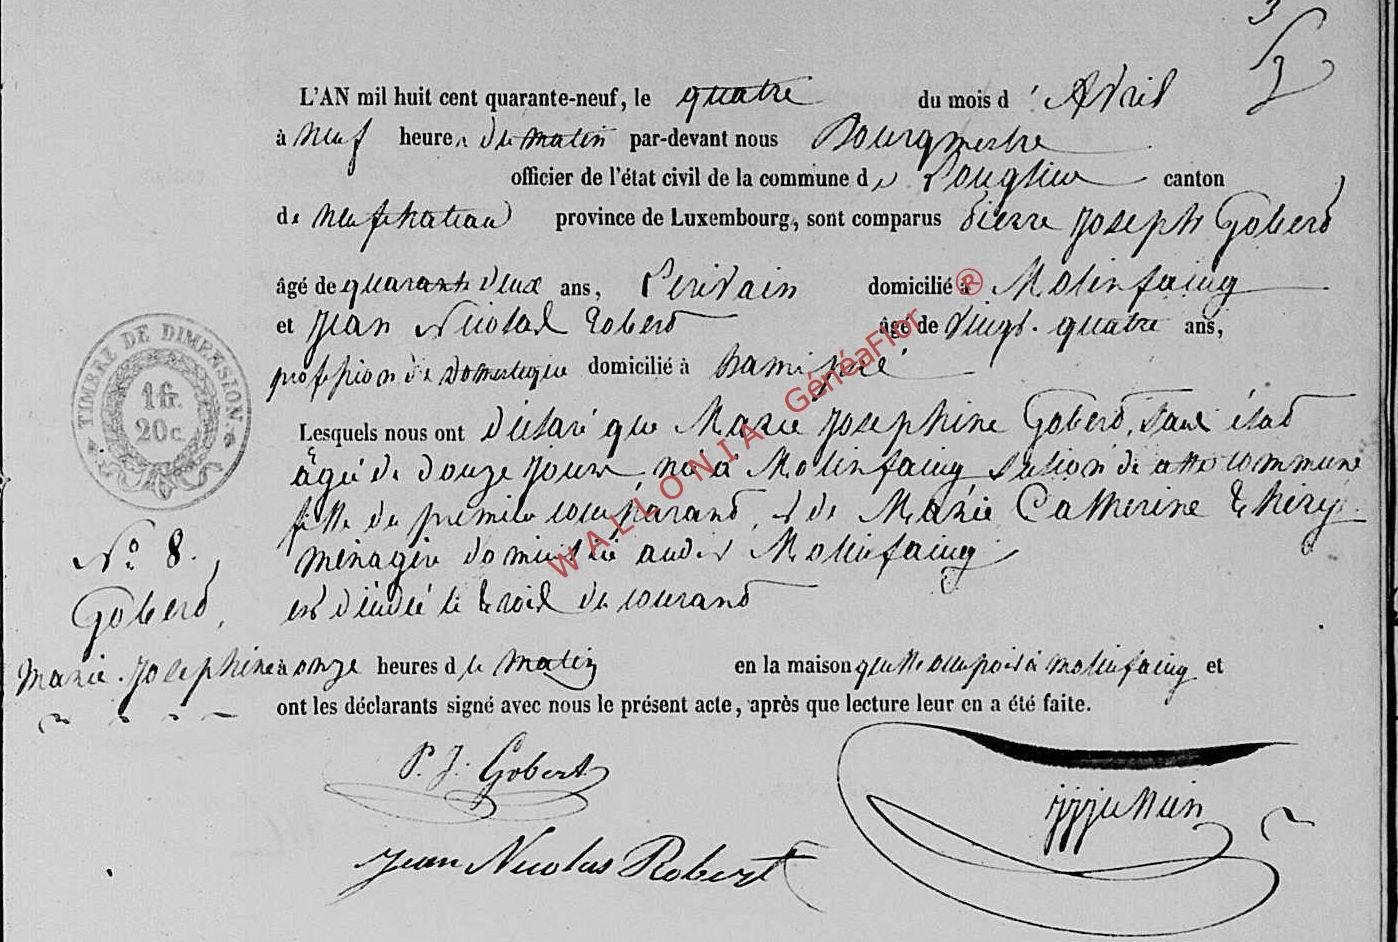 3
L'AN mil huit cent quarante-neuf, le quatre du mois d' Avril
à neuf heures du matin par-devant nous Bourgmestre
officier de l'état civil de la commune de Longlier canton
de neufchateau province de Luxembourg, sont comparus Pierre Joseph Goberd
âgé de quarante deux ans, Ecrivain domicilié à Molinfaing
et Jean Nicolas Roberd âgé de vingt-quatre ans,
profession de domestique domicilié à hamipré
Lesquels nous ont déclaré que Marie Josephine Goberd, sans état
âgée de douze jours née à Molinfaing section de cette commune
fille du premier comparant, et de Marie Catherine Thiry
ménagère domiciliée audit Molinfaing
est décédée le trois du courand
à onze heures du matin en la maison qu'elle occupoit à molinfaing et
ont les déclarants signé avec nous le présent acte, après que lecture leur en a été faite.
TIMBRE DE DIMENSION.
1 fr.
20 c.
No. 8.
Goberd,
Marie-Josephine
P. J. Gobert
Jean Nicolas Robert
WALLONIA GénéaFlor ®